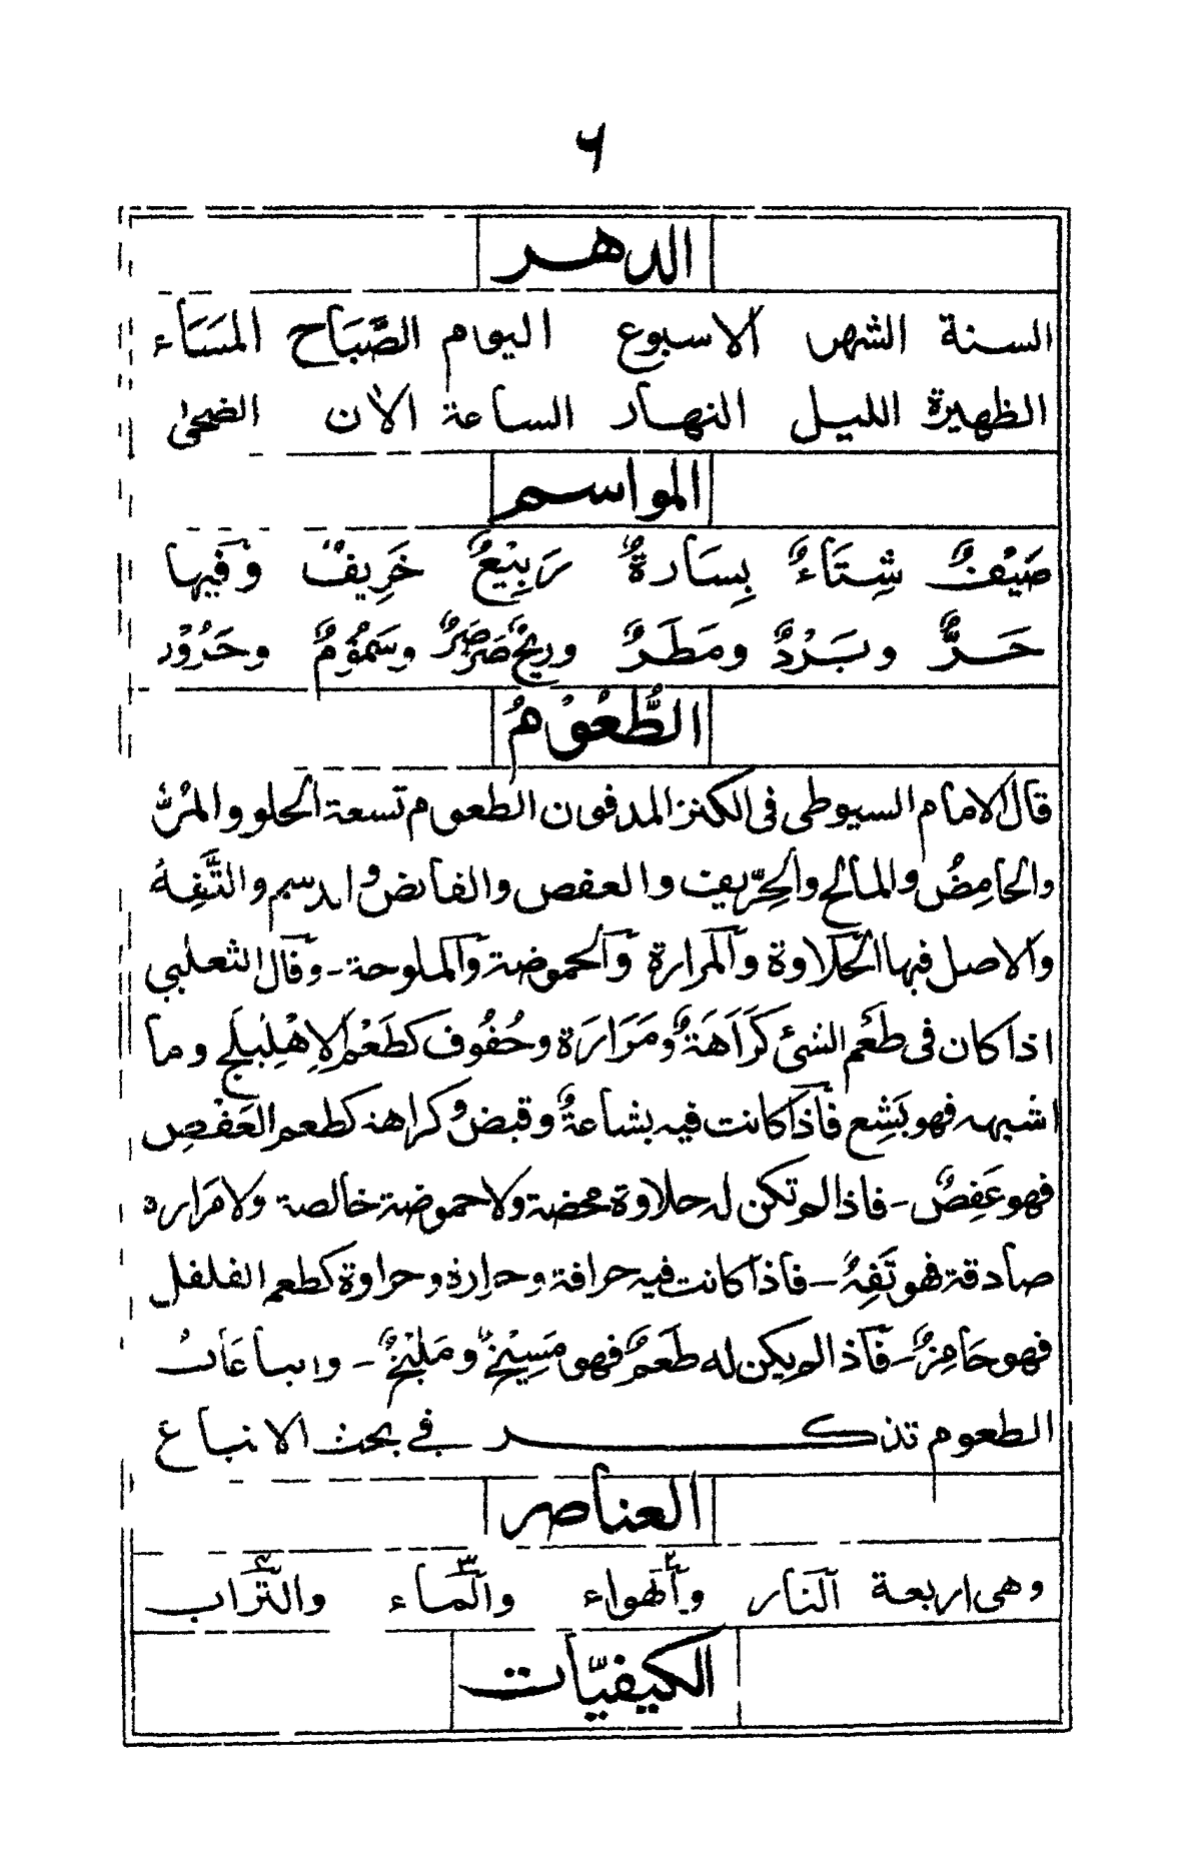 ۶
الدهر
السنة الشهر الاسبوع اليوم الصَّبَاح المَسَاء
الظهيرة الليل النهار الساعة الاٰن الضحىٰ
المواسم
صَيْفٌ شِتَاءٌ بِسَارةٌ رَبِيْعٌ خَرِيفٌ وفيها
حَرٌّ وبَرْدٌ ومَطَرٌ وريْحٌ صَرْصَرٌ وسَمُوْمٌ وحَرُوْر
الطُّعُوْمُ
قال الامام السيوطى فى الكنز المدفون الطعوم تسعة الحلو والمُرُّ
والحامِضُ والمالح والحِرّيف والعفص والقابض والدسم والتَّفِهُ
والاصل فيها الحَلاوة والمرارة والحموضة والملوحة - وقال الثعلبي
اذا كان فى طَعْم الشئ كَرَاهَةٌ ومَرَارَة وحُفُوف كطَعْم الاِهْلِيْلَج وما
اشبهه فهو بَشِع فاذا كانت فيه بشاعةٌ وقبض وكراهة كطعم العَفْصِ
فهو عَفِصٌ - فاذا لم تكن له حلاوة محضة ولا حموضة خالصة ولا مراره
صادقة فهو تَفِهٌ - فاذا كانت فيه حرافة وحرارة وحراوة كطعم الفلفل
فهو حَامِزٌ - فاذا لم يكن له طَعمٌ فهو مَسِيْخٌ ومَلِيْخٌ -
الطعوم تذكر في بحث الاتباع
العناصر
وهى اربعة النار والهواء والماء والتُّراب
الكيفيّات